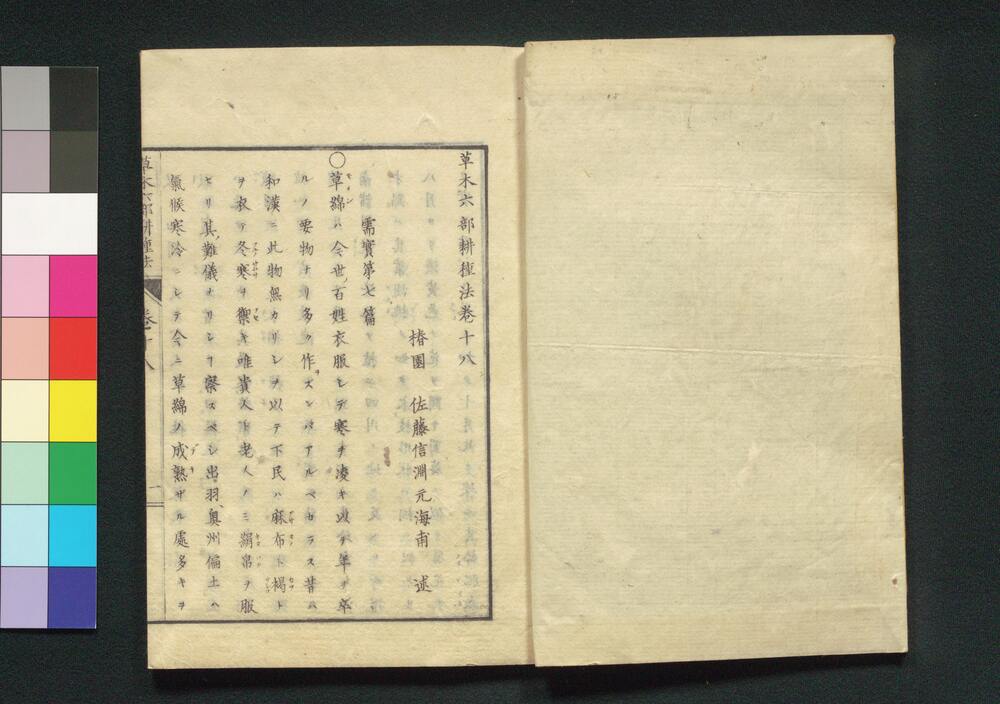 草木六部耕種法巻十八
椿園 佐藤信淵元海甫 述
需實第七篇
〇草綿ハ今世百姓衣服シテ寒ヲ凌キ以テ年ヲ卒
ルノ要物ナリ多ク作ズンバアルベカラス昔ハ
和漢ニ此物無カリシヲ以テ下民ハ麻布ト褐ト
ヲ衣テ冬寒ヲ禦キ唯貴人ト老人ノミ絹帛ヲ服
セリ其難儀ナリシヿ察スベシ出羽奥州偏土ハ
氣候寒冷ニシテ今ニ草綿ノ成熟ザル處多キヲ
草木六部耕種法 巻十八 一